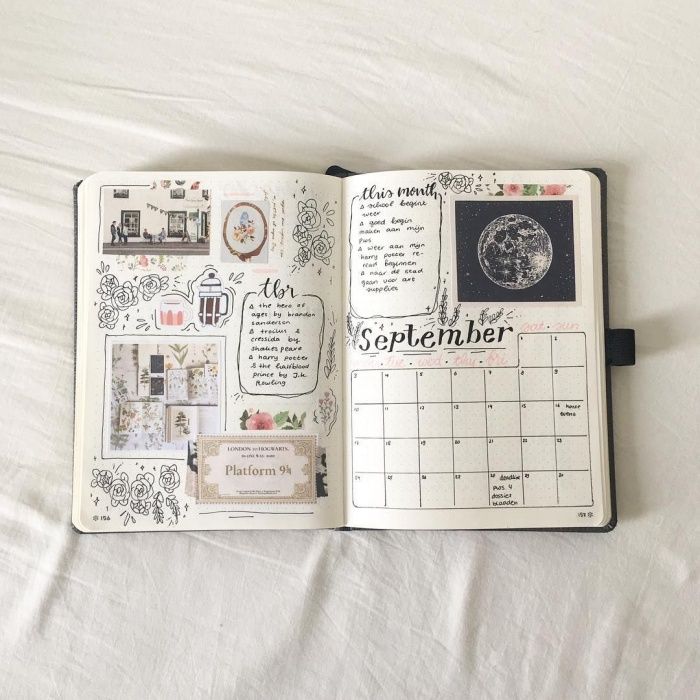 tbr
∆ the hero of
ages by brandon
sanderson
∆ troilus &
cressida by
shakespeare
∆ harry potter
& the halfblood
prince by J.K.
Rowling
LONDON to HOGWARTS.
Platform 9¾
156
this month
∆ school begint
weer
∆ goed begin
maken aan mijn
pws
∆ weer aan mijn
harry potter re-
read beginnen
∆ naar de stad
gaan voor art
supplies
September
sat sun
tue wed thu fri
1 2
3 4 5 6 7 8 9
10 11 12 13 14 15 16
17 18 19 20 21 22 23
24 25 26 27 28 deadline 29 30
pws 4
dossier
157